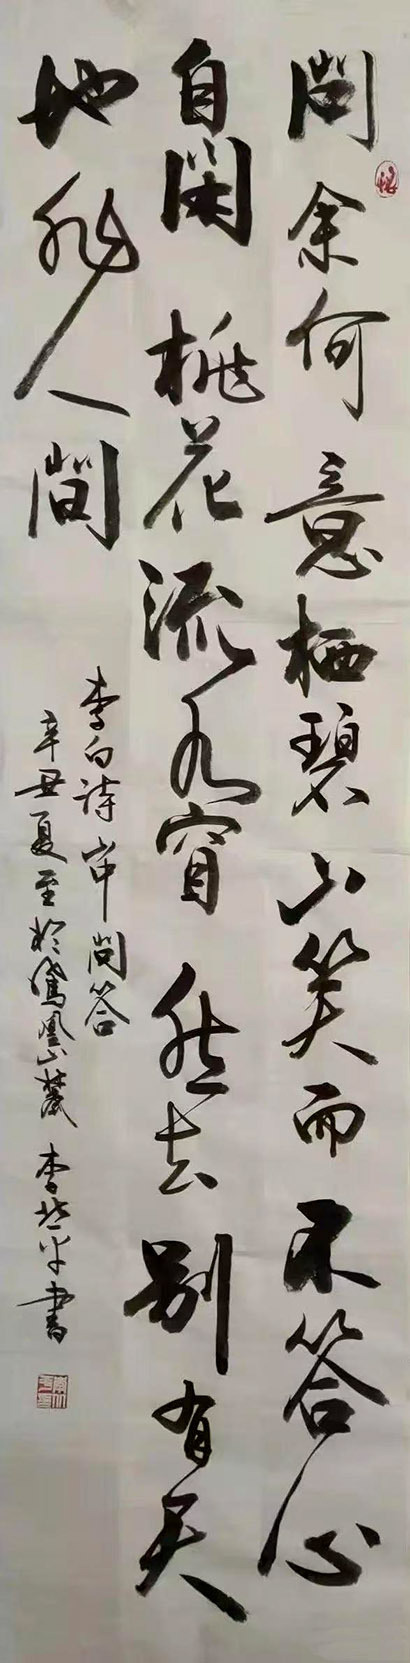 問余何意栖碧山笑而不答心
自閑桃花流水窅然去別有天
地非人間
李白詩山中問答
辛丑夏至於鳳凰山麓李
書